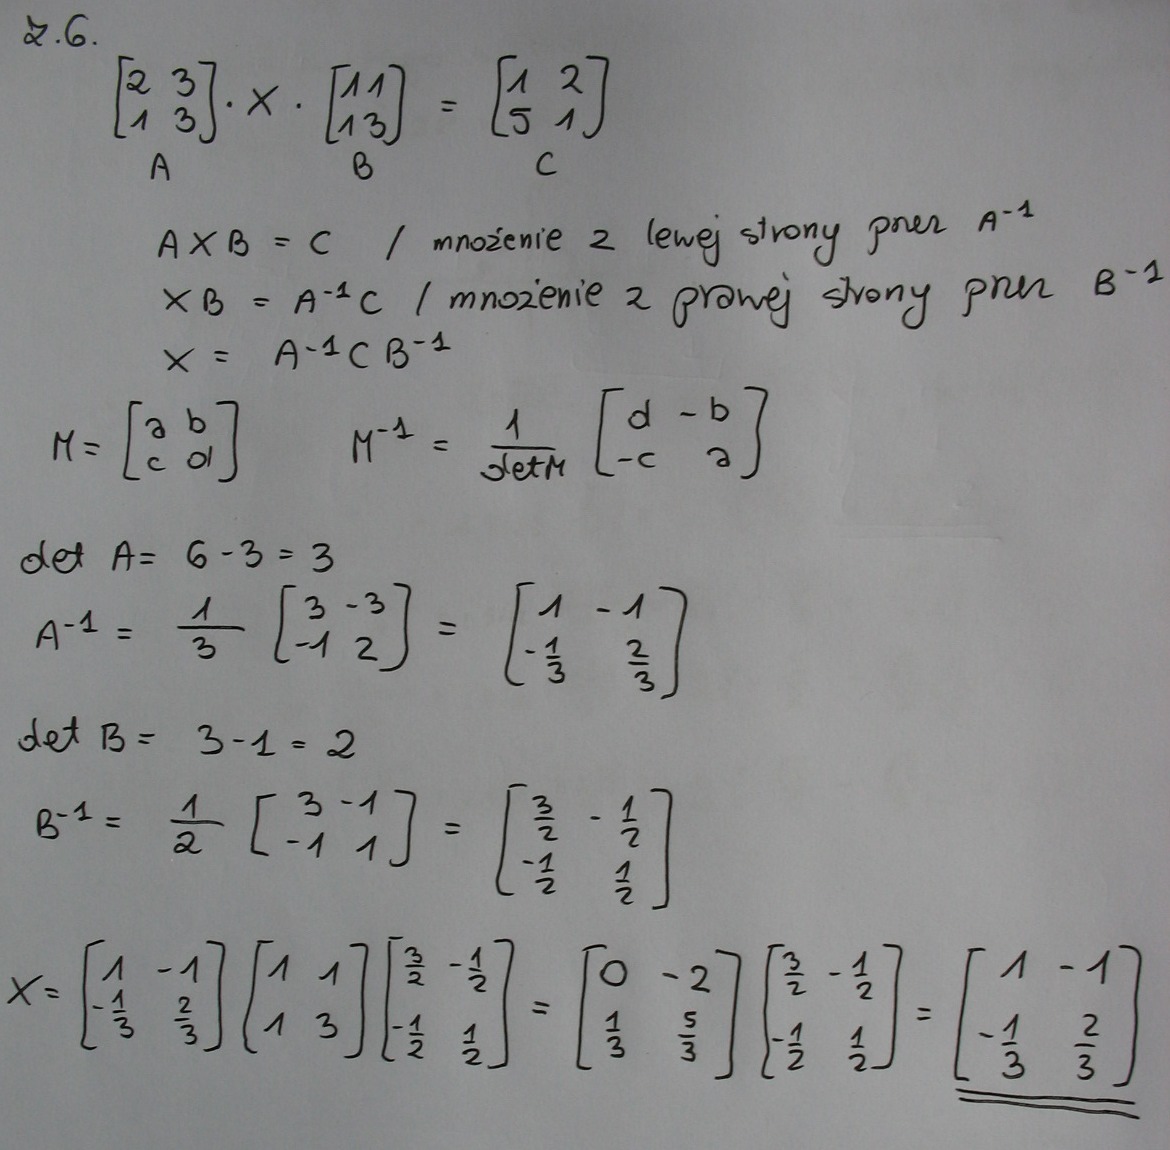 z.6.
[2 3; 1 3] · X · [1 1; 1 3] = [1 2; 5 1]
A B C
AXB = C / mnożenie z lewej strony przez A⁻¹
XB = A⁻¹C / mnożenie z prawej strony przez B⁻¹
X = A⁻¹CB⁻¹
M = [a b; c d] M⁻¹ = 1/detM [d -b; -c a]
det A = 6 - 3 = 3
A⁻¹ = 1/3 [3 -3; -1 2] = [1 -1; -1/3 2/3]
det B = 3 - 1 = 2
B⁻¹ = 1/2 [3 -1; -1 1] = [3/2 -1/2; -1/2 1/2]
X = [1 -1; -1/3 2/3] [1 1; 1 3] [3/2 -1/2; -1/2 1/2] = [0 -2; 1/3 5/3] [3/2 -1/2; -1/2 1/2] = [1 -1; -1/3 2/3]